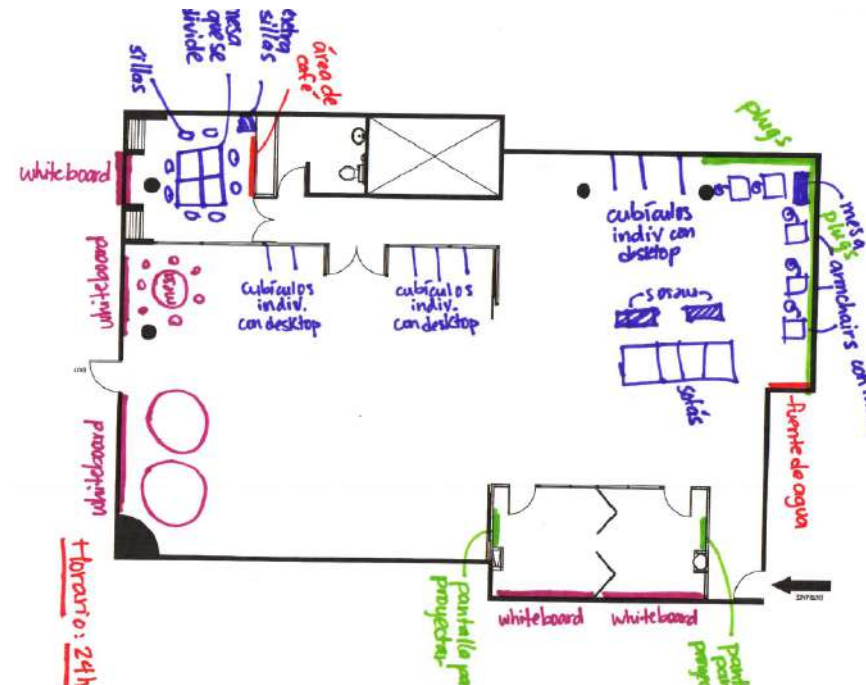 sillas
mesa
que se
divide
extra
sillas
área de
café
whiteboard
whiteboard
mesa
whiteboard
cubículos
indiv.
con desktop
cubículos
indiv.
con desktop
cubículos
indiv con
desktop
plugs
mesa
plugs
armchairs con
mesas
sofás
fuente de agua
EXIT
ENTRANCE
whiteboard
whiteboard
pantalla
proyectar
Horario: 24h